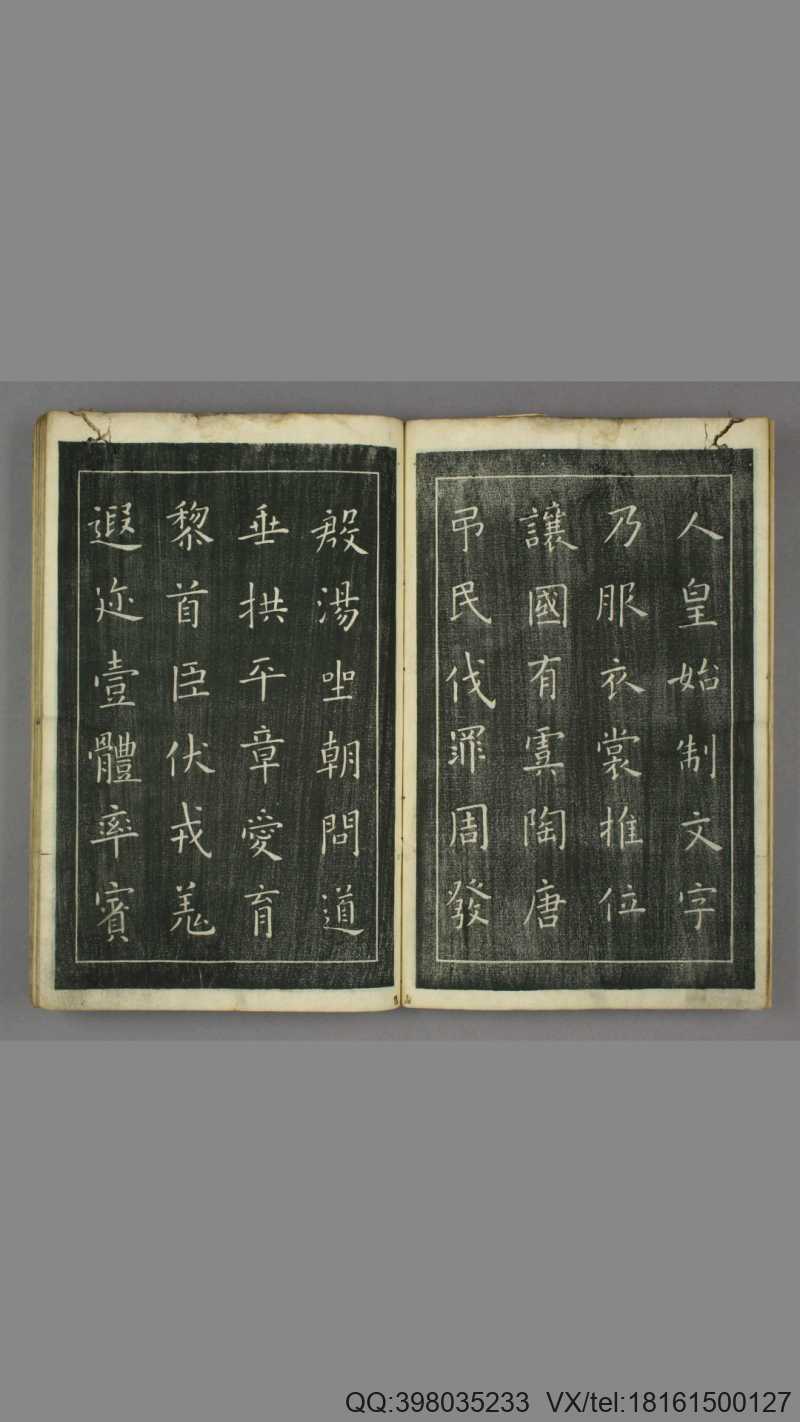 人皇始制文字
乃服衣裳推位
讓國有虞陶唐
弔民伐罪周發
殷湯坐朝問道
垂拱平章愛育
黎首臣伏戎羌
遐迩壹體率賓
QQ:398035233 VX/tel:18161500127